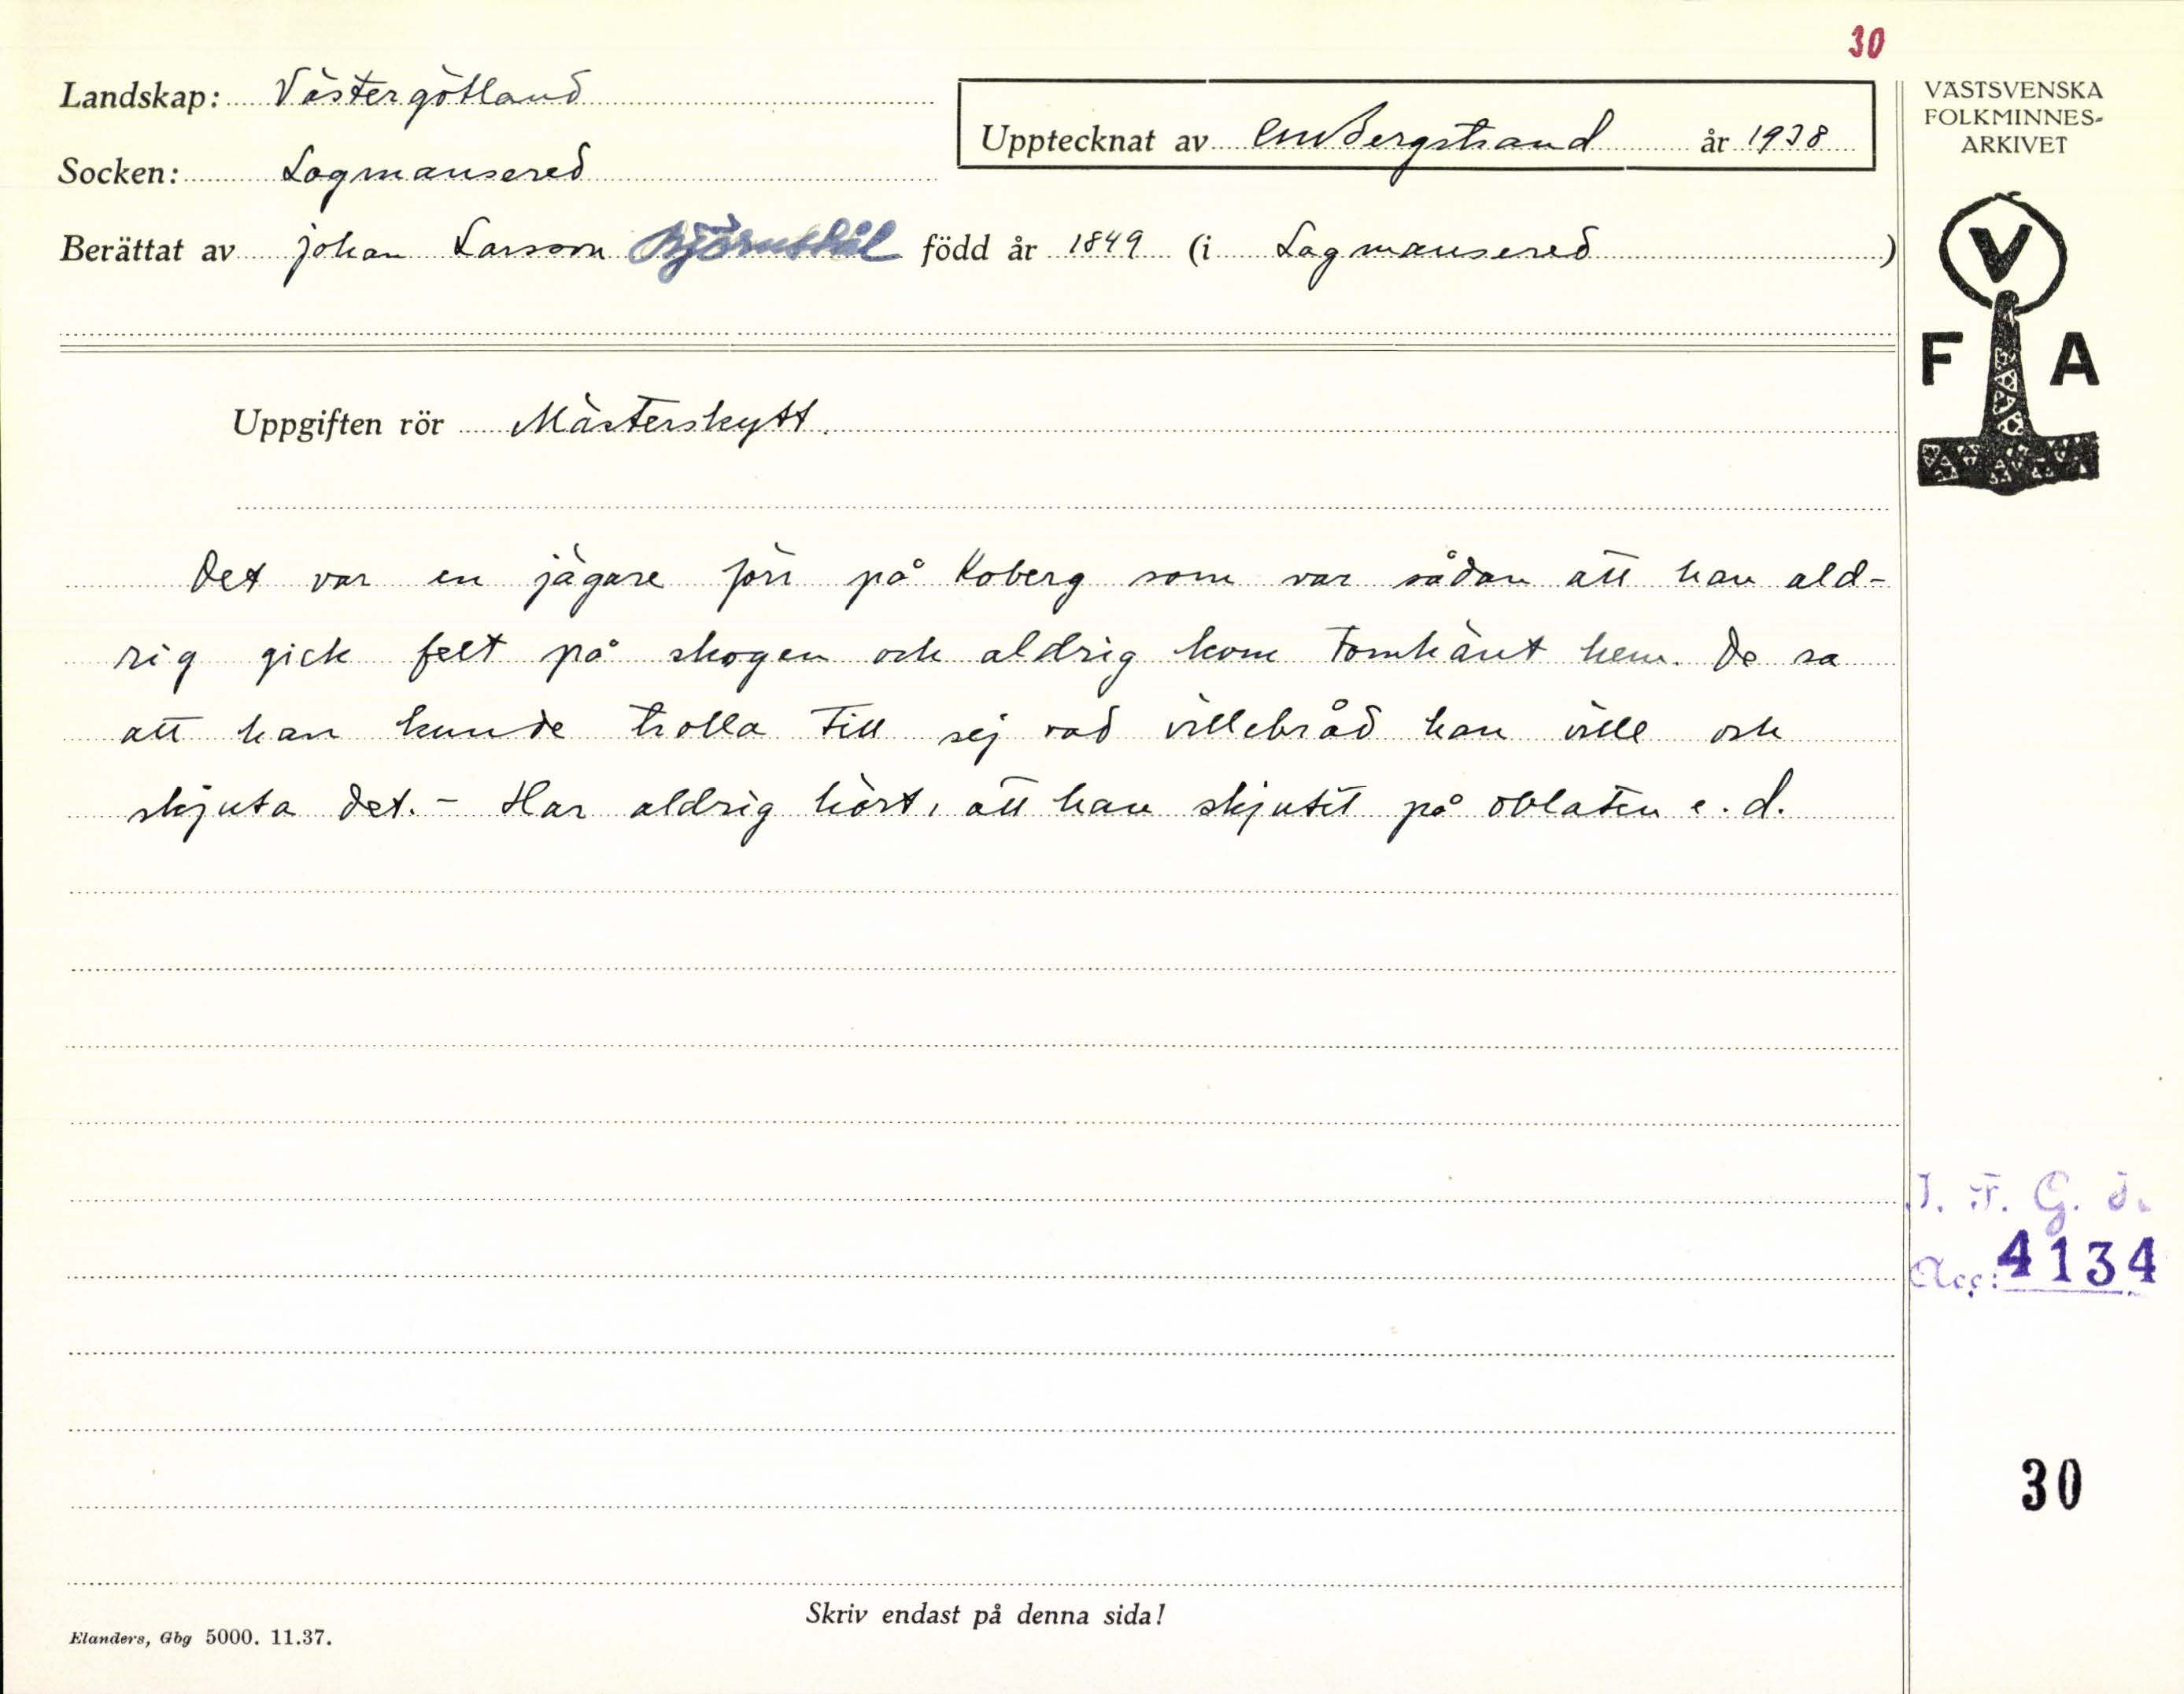 30
Landskap: Västergötland
Upptecknat av CMBergstrand år 1938
Socken: Lagmansered
Berättat av Johan Larsson född år 1849 (i Lagmansered)
VÄSTSVENSKA
FOLKMINNES-
ARKIVET
V
F A
Uppgiften rör Mästerskytt.
Det var en jägare förr på Koberg som var sådan att han ald-
rig gick felt på skogen och aldrig kom tomhänt hem. De sa
att han kunde trolla till sej vad villebråd han ville och
skjuta det. - Har aldrig hört, att han skjutit på oblaten e. d.
I. F. G. H.
Acc: 4134
30
Skriv endast på denna sida!
Elanders, Gbg 5000. 11.37.